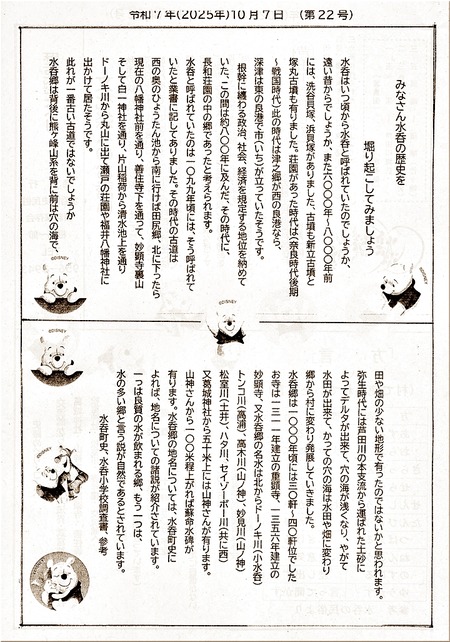 令和7年(2025年)10月7日　(第22号)
みなさん水呑の歴史を
掘り起こしてみましょう
水呑はいつ頃から水呑と呼ばれていたのでしょうか、
遠い昔からでしょうか、また六〇〇〇年~八〇〇〇年前
には、洗谷貝塚、浜貝塚がありました、古墳も新立古墳と
塚丸古墳も有りました。荘園があった時代は(奈良時代後期
~戦国時代)此の時代は津之郷が西の良港なら、
深津は東の良港で市(いち)が立っていたそうです。
根幹に纏わる政治、社会、経済を規定する地位を納めて
いた、この間は約八〇〇年に及んだ、その時代に、
長和荘園の中の郷であったと考えられます。
水呑と呼ばれていたのは一〇九九年頃には、そう呼ばれて
いたと業書に記してありました。その時代の古道は
西の奥のひょうたん池から南に行けば田尻郷、北に下ったら
現在の八幡神社前を通り、善住寺下を通って、妙顕寺裏山
そして白一神社を通り、片山稲荷から清水池上を通り
ドーノキ川から丸山に出て瀬戸の荘園や福井八幡神社に
出かけて居たそうです。
此れが一番古い古道ではないでしょうか
水呑郷は背後に熊ヶ峰山系を背に前は穴の海で、
©DISNEY
©DISNEY
©DISNEY
©DISNEY
田や畑の少ない地形で有ったのではないかと思われます。
弥生時代には芦田川の本支流から運ばれた土砂に
よってデルタが出来て、穴の海が浅くなり、やがて
水田が出来て、かつての穴の海は水田や畑に変わり
郷から村に変わり発展していきました。
水呑郷は一〇〇〇年頃には三〇軒~四〇軒位でした
お寺は一三一一年建立の重顕寺、一三五六年建立の
妙顕寺、又水呑郷の名水は北からドーノキ川(小水呑)
トンコ川(高浦)、高木川(山ノ神)、妙見川(山ノ神)
松室川(土井)、ハタ川、セイゾーボー川(共に西)
又葛城神社から五十米上には山神さんが有ります。
山神さんから一〇〇米程上がれば蘇命水碑が
有ります。水呑郷の地名については、水呑町史に
よれば、地名についての諸説が紹介されています。
一つは良質の水が飲まれる郷、もう一つは、
水の多い郷と言う説が自然であるとされています。
水呑町史、水呑小学校調査書、参考